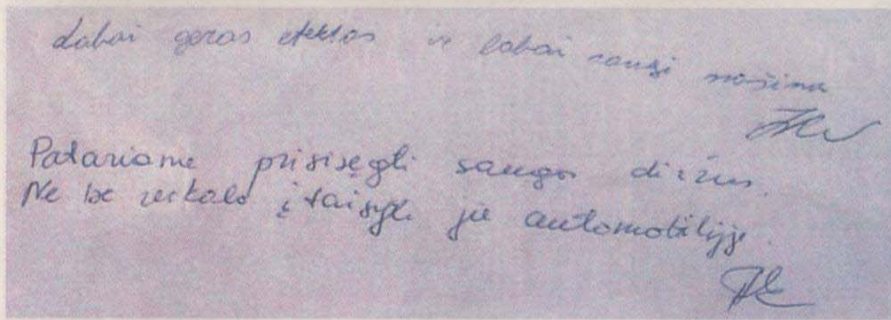 Labai geras efektas ir labai saugi mašina
Patariame prisisegti saugos diržus.
Ne be reikalo įtaisyti jie automobilyje.